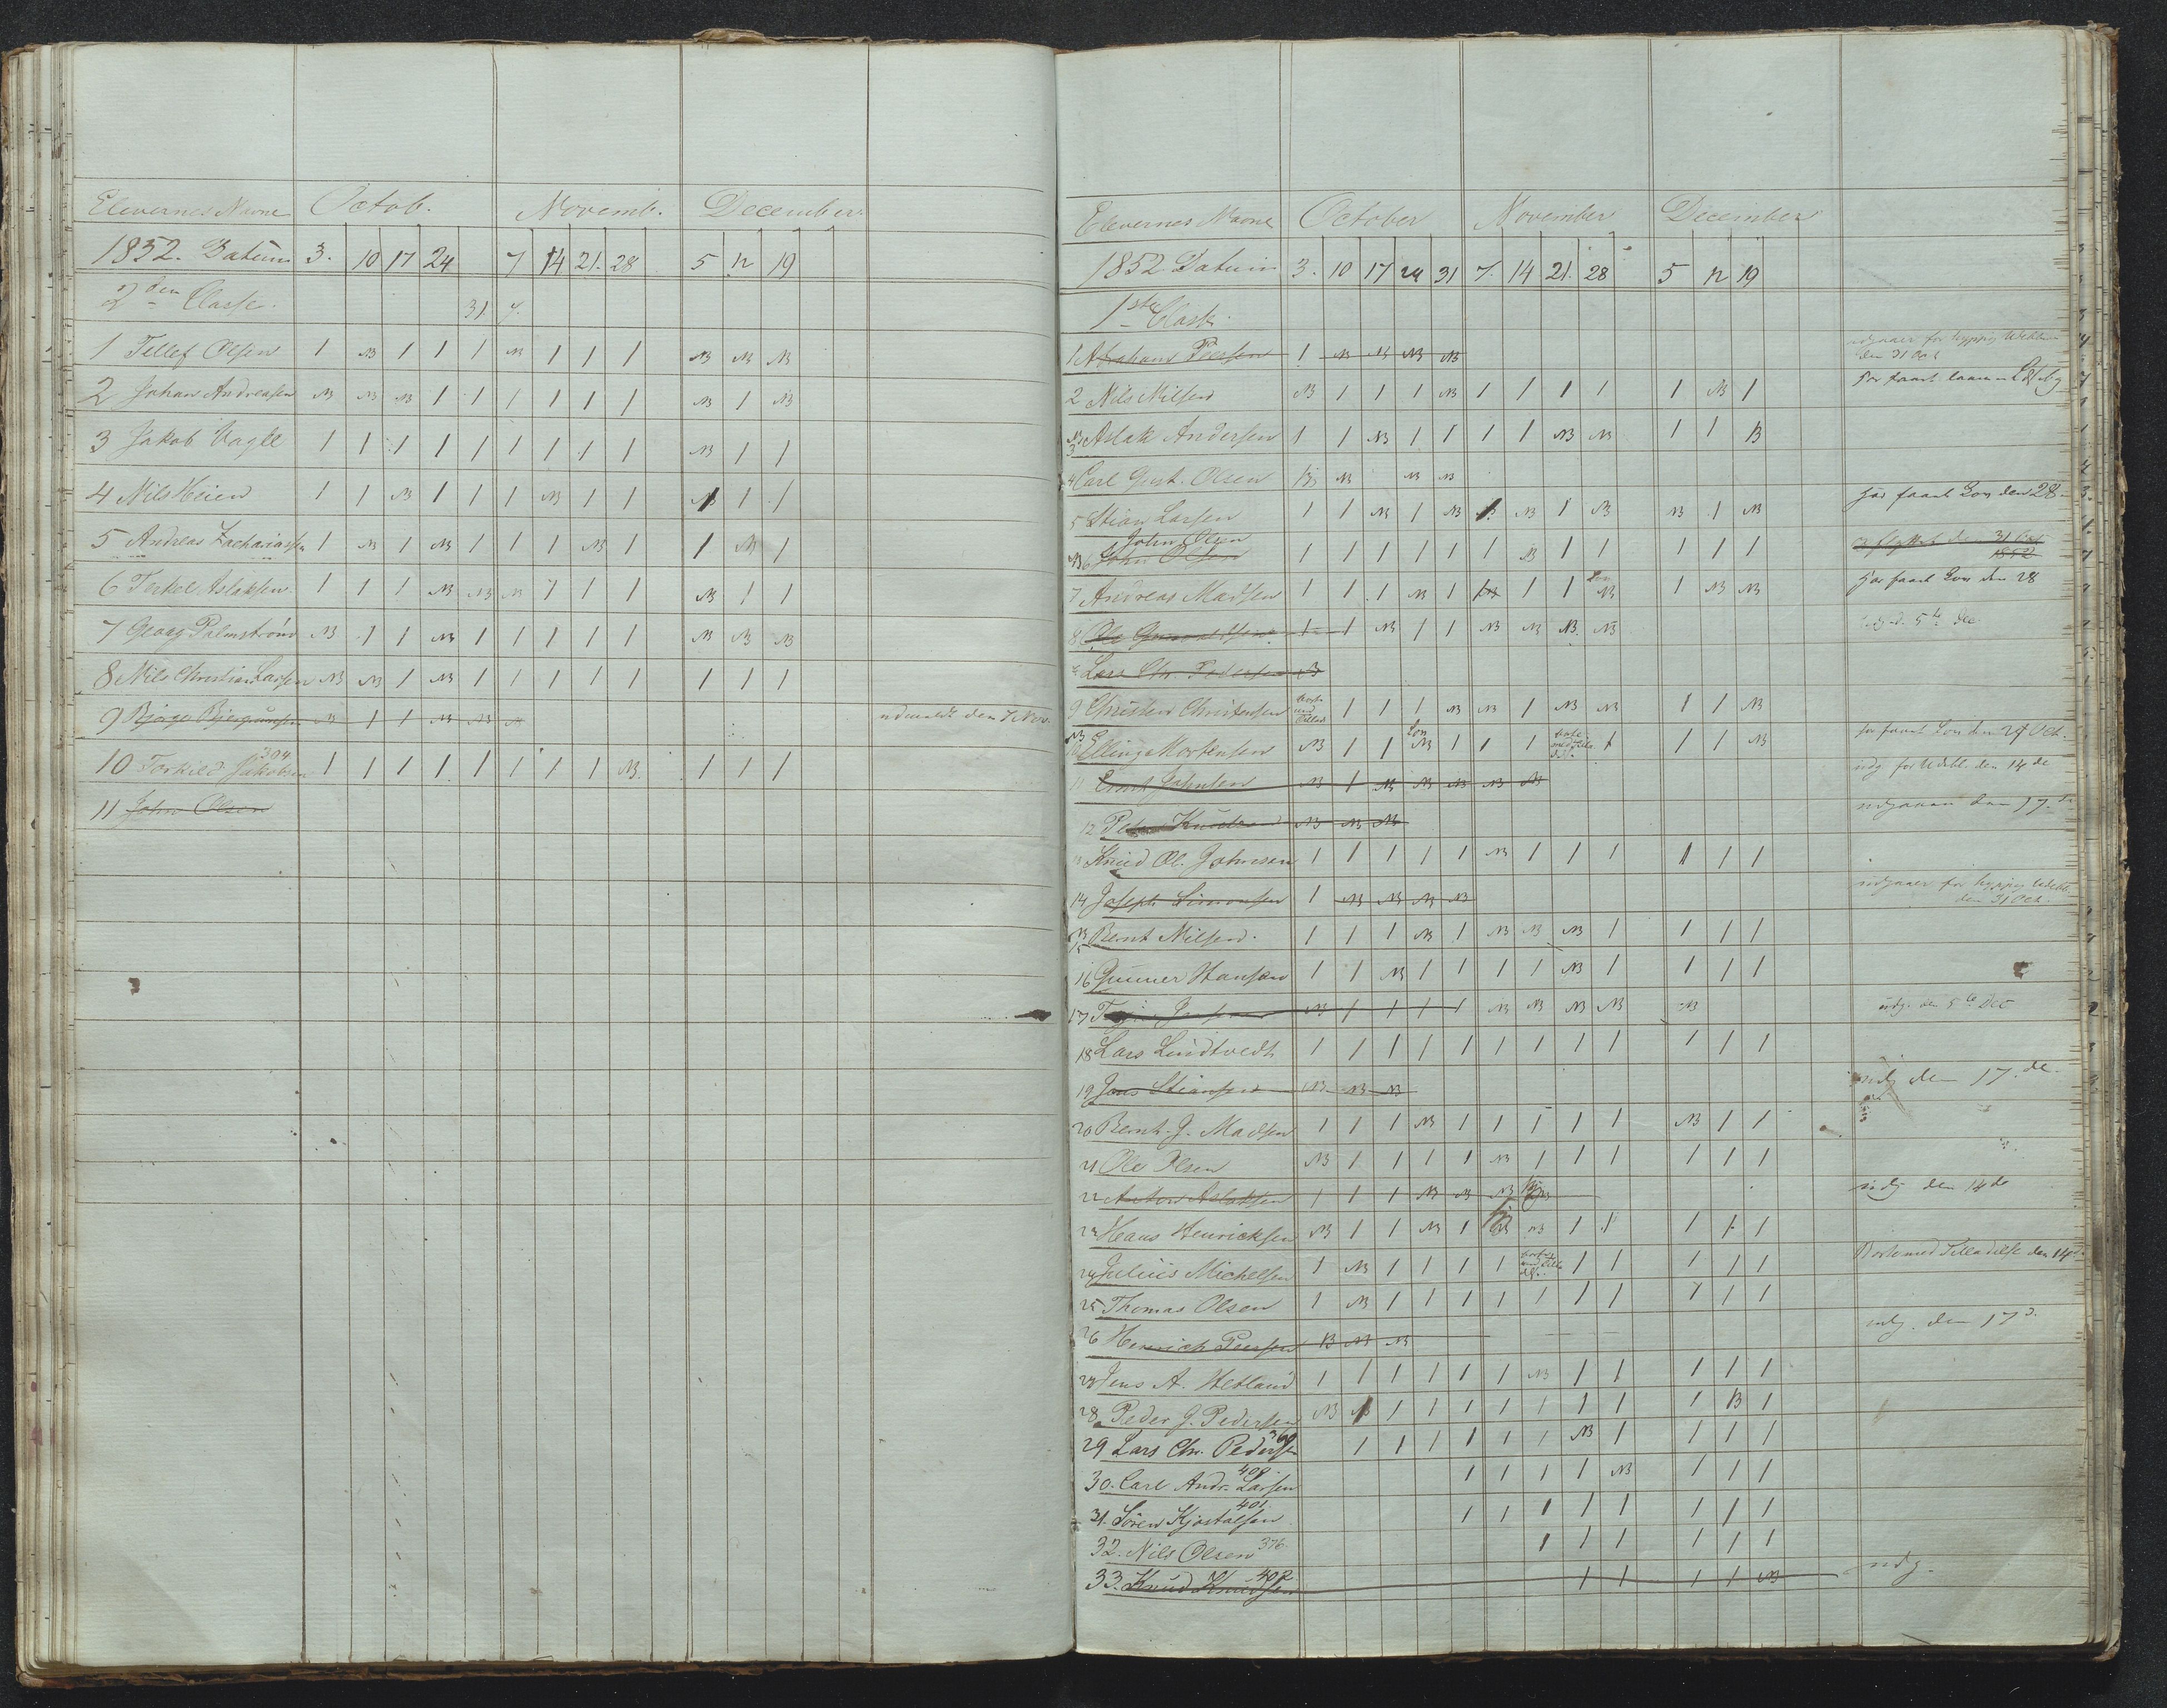 Elevernes Navne Octob. Novemb. December
1852. Datum 3. 10 17 24 7 14 21. 28 5 12 19
2den Classe. 31 7.
1 Tellef Olsen 1 NB 1 1 1 NB 1 1 1 NB NB NB
2 Johan Andreasen NB NB NB 1 1 1 1 1 1 NB 1 NB
3 Jakob Vagle 1 1 1 1 1 1 1 1 1 NB 1 1
4 Nils Heien 1 1 NB 1 1 1 NB 1 1 1 1
5 Andreas Zachariassen 1 NB 1 NB 1 1 1 NB 1 1 NB 1
6 Terkel Aslaksen 1 1 1 NB NB NB 1 1 1 NB 1 1
7 Georg Palmstrøm NB 1 1 NB 1 1 1 1 1 NB NB NB
8 Nils Christian Larsen NB NB 1 NB 1 1 1 1 1 1 1 1
9 NB 1 1 NB NB NB den 7 Nov.
304
10 Torkild Jakobsen 1 1 1 1 1 1 1 1 NB. 1 1 1
11 John Olsen
Elevernes Navne October November December
1852 Datum 3. 10 17 24 31 7. 14 21. 28 5 12 19
1ste Classe.
1 Abraham Peersen 1 NB NB NB NB udgaaer for hyppig
den 31 Oct
2 Nils Nilsen NB 1 1 1 NB 1 1 1 1 1 NB 1
NB
3 Aslak Andersen 1 1 NB 1 1 1 1 NB NB 1 1 B
4 Carl Gust. Olsen NB NB NB
5 Stian Larsen 1 1 NB 1 NB NB 1 NB NB 1 NB har faaet Lov den 28
John Olsen
NB 6 John Olsen 1 1 1 1 1 1 NB 1 1 1 1 1 31 Oct
1852
7 Andreas Madsen 1 1 1 NB 1 1 1 Lov NB 1 NB NB har faaet Lov den 28
8 Ole 1 1 NB 1 1 NB NB NB NB 5te Dec
Lars Chr. Pedersen NB
9 Christen Christensen 1 1 1 NB NB 1 NB NB 1 1 NB
NB
10 Elling Mortensen NB 1 1 Lov NB 1 1 1 1 1 1 NB har faaet Lov den 24 Oct.
11 Johnsen NB 1 NB NB NB NB NB udg for Udebl. den 14de
12 Peder Knudsen NB NB NB udgaaer den 17de
13 Knud Ol. Johnsen 1 1 1 1 1 NB 1 1 1 1 1 1
14 Joseph Simonsen 1 NB NB NB NB udgaaer for hyppig Udebl.
den 31 Oct.
NB
15 Bernt Nilsen. 1 1 1 NB 1 NB NB NB 1 1 1 1
16 Gunner Hansen 1 1 NB 1 1 1 1 NB 1 1 1 1
17 NB 1 1 1 1 NB NB NB NB NB udg. den 5te Dec
18 Lars Lindtvedt 1 1 1 1 1 1 1 1 1 1 1 1
19 Jens Stiansen NB NB NB udg den 17.de
20 Bernt. J. Madsen 1 1 1 NB 1 1 1 1 1 NB 1 1
21 Ole Olsen NB 1 1 1 1 NB 1 1 1 1 1 1
22 Anton Aslaksen 1 1 1 NB NB NB udg den 14de
23 Hans Henricksen NB 1 1 NB 1 NB NB 1 1 1 1 1
24 Julius Michelsen 1 NB 1 1 1 1 1 1 1 1 1 Borte med Tilladelse den 14de
25 Thomas Olsen 1 NB 1 1 1 1 1 1 1 1 1 1
26 Henrich Peersen B NB NB udg. den 17d.
27 Jens A. Hetland 1 1 1 1 1 1 NB 1 1 1 1 1
28 Peder J. Pedersen NB 1 1 1 1 1 1 1 1 1 B 1
29 Lars Chr. Pedersen 1 1 1 1 1 1 NB 1 1 1 1
408.
30. Carl Andr. Larsen 1 1 1 1 NB 1 1 1
401.
31. Sören Kjostolsen 1 1 1 1 1 1 1 1
32. Nils Olsen 376. 1 1 1 1 1 1
402
33. Knud Knudsen 1 1 1 1 NB udg.